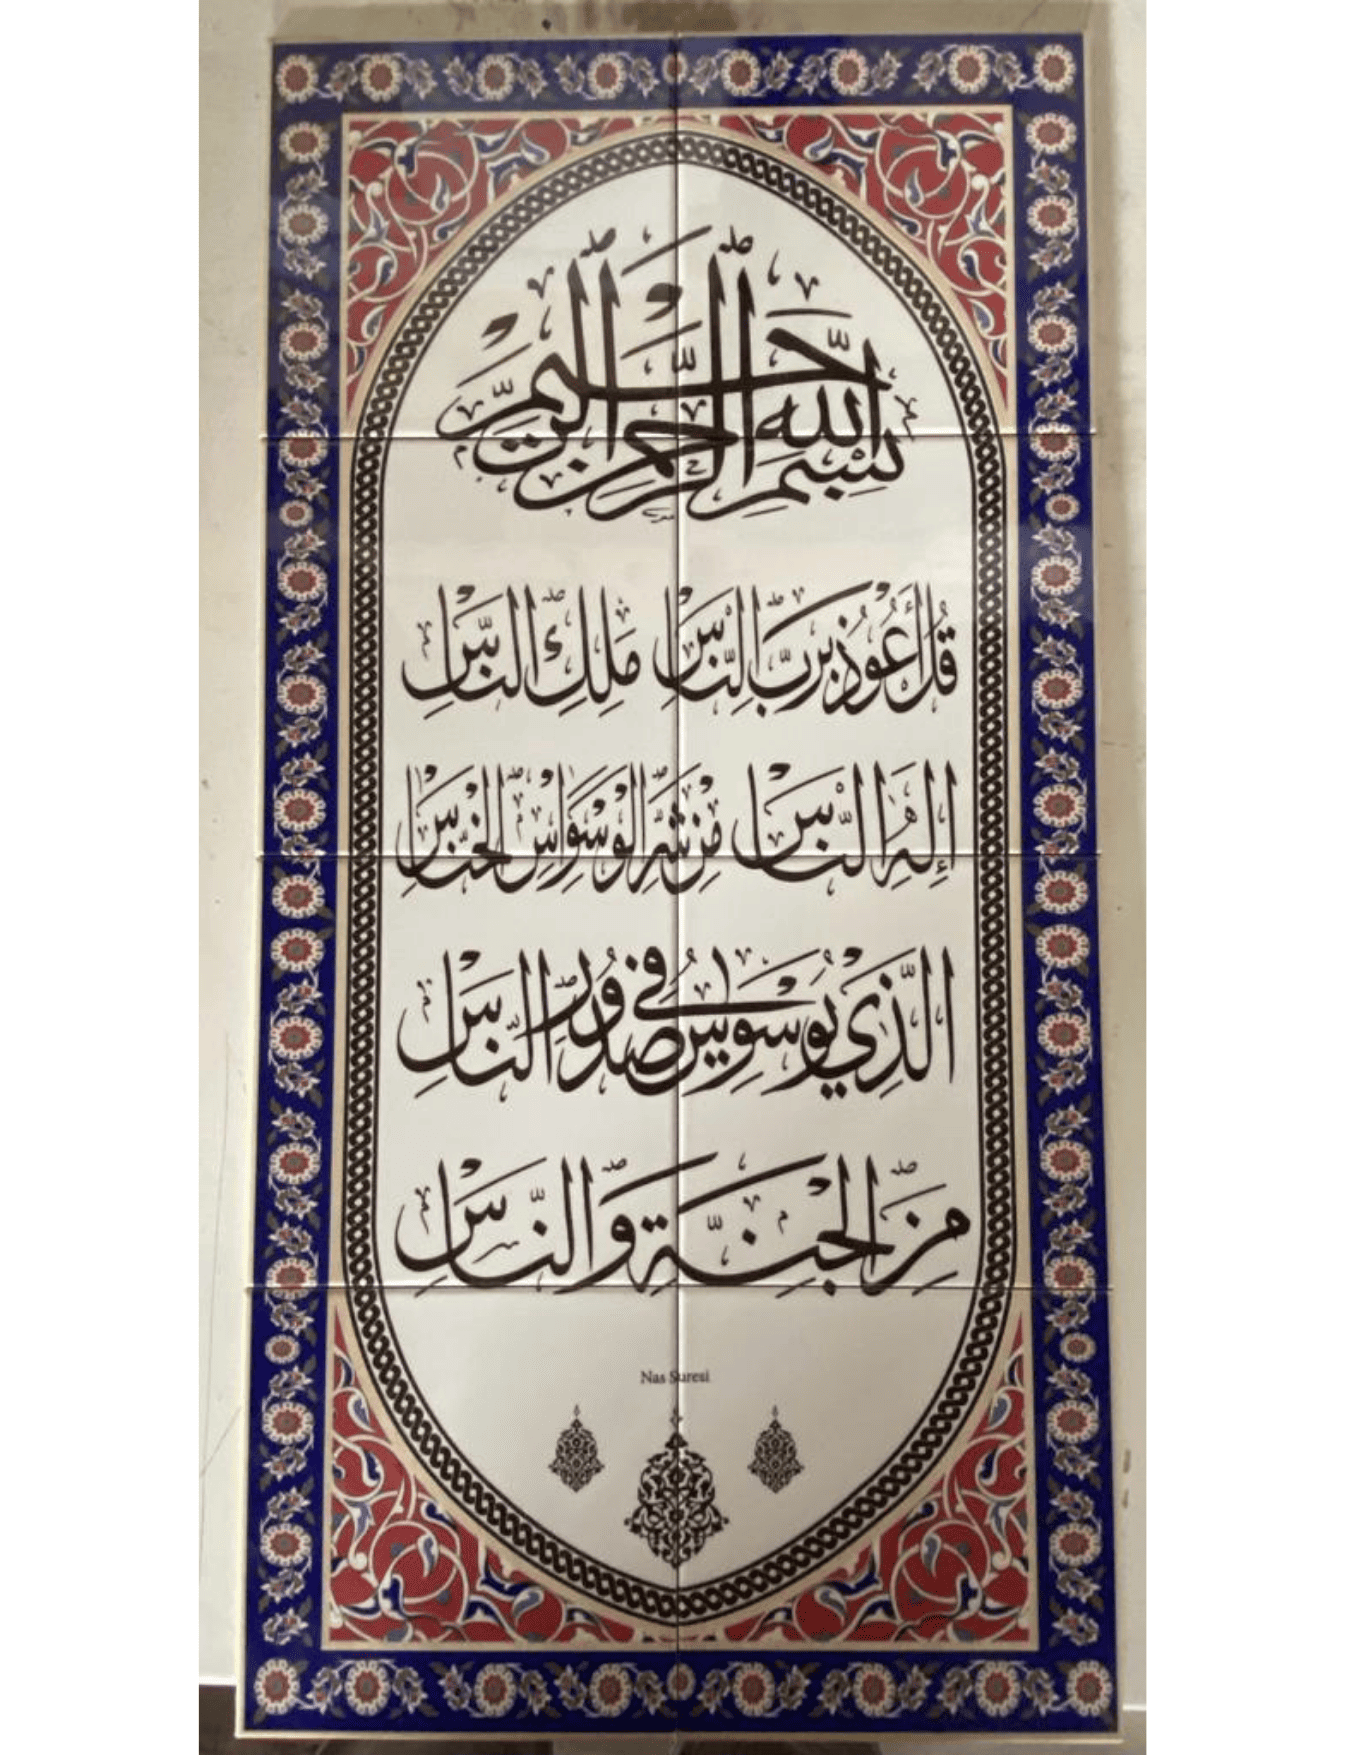 بِسْمِ اللهِ الرَّحْمٰنِ الرَّحِيمِ
قُلْ أَعُوذُ بِرَبِّ النَّاسِ مَلِكِ النَّاسِ
إِلٰهِ النَّاسِ مِنْ شَرِّ الْوَسْوَاسِ الْخَنَّاسِ
الَّذِي يُوَسْوِسُ فِي صُدُورِ النَّاسِ
مِنَ الْجِنَّةِ وَالنَّاسِ
Nas Suresi